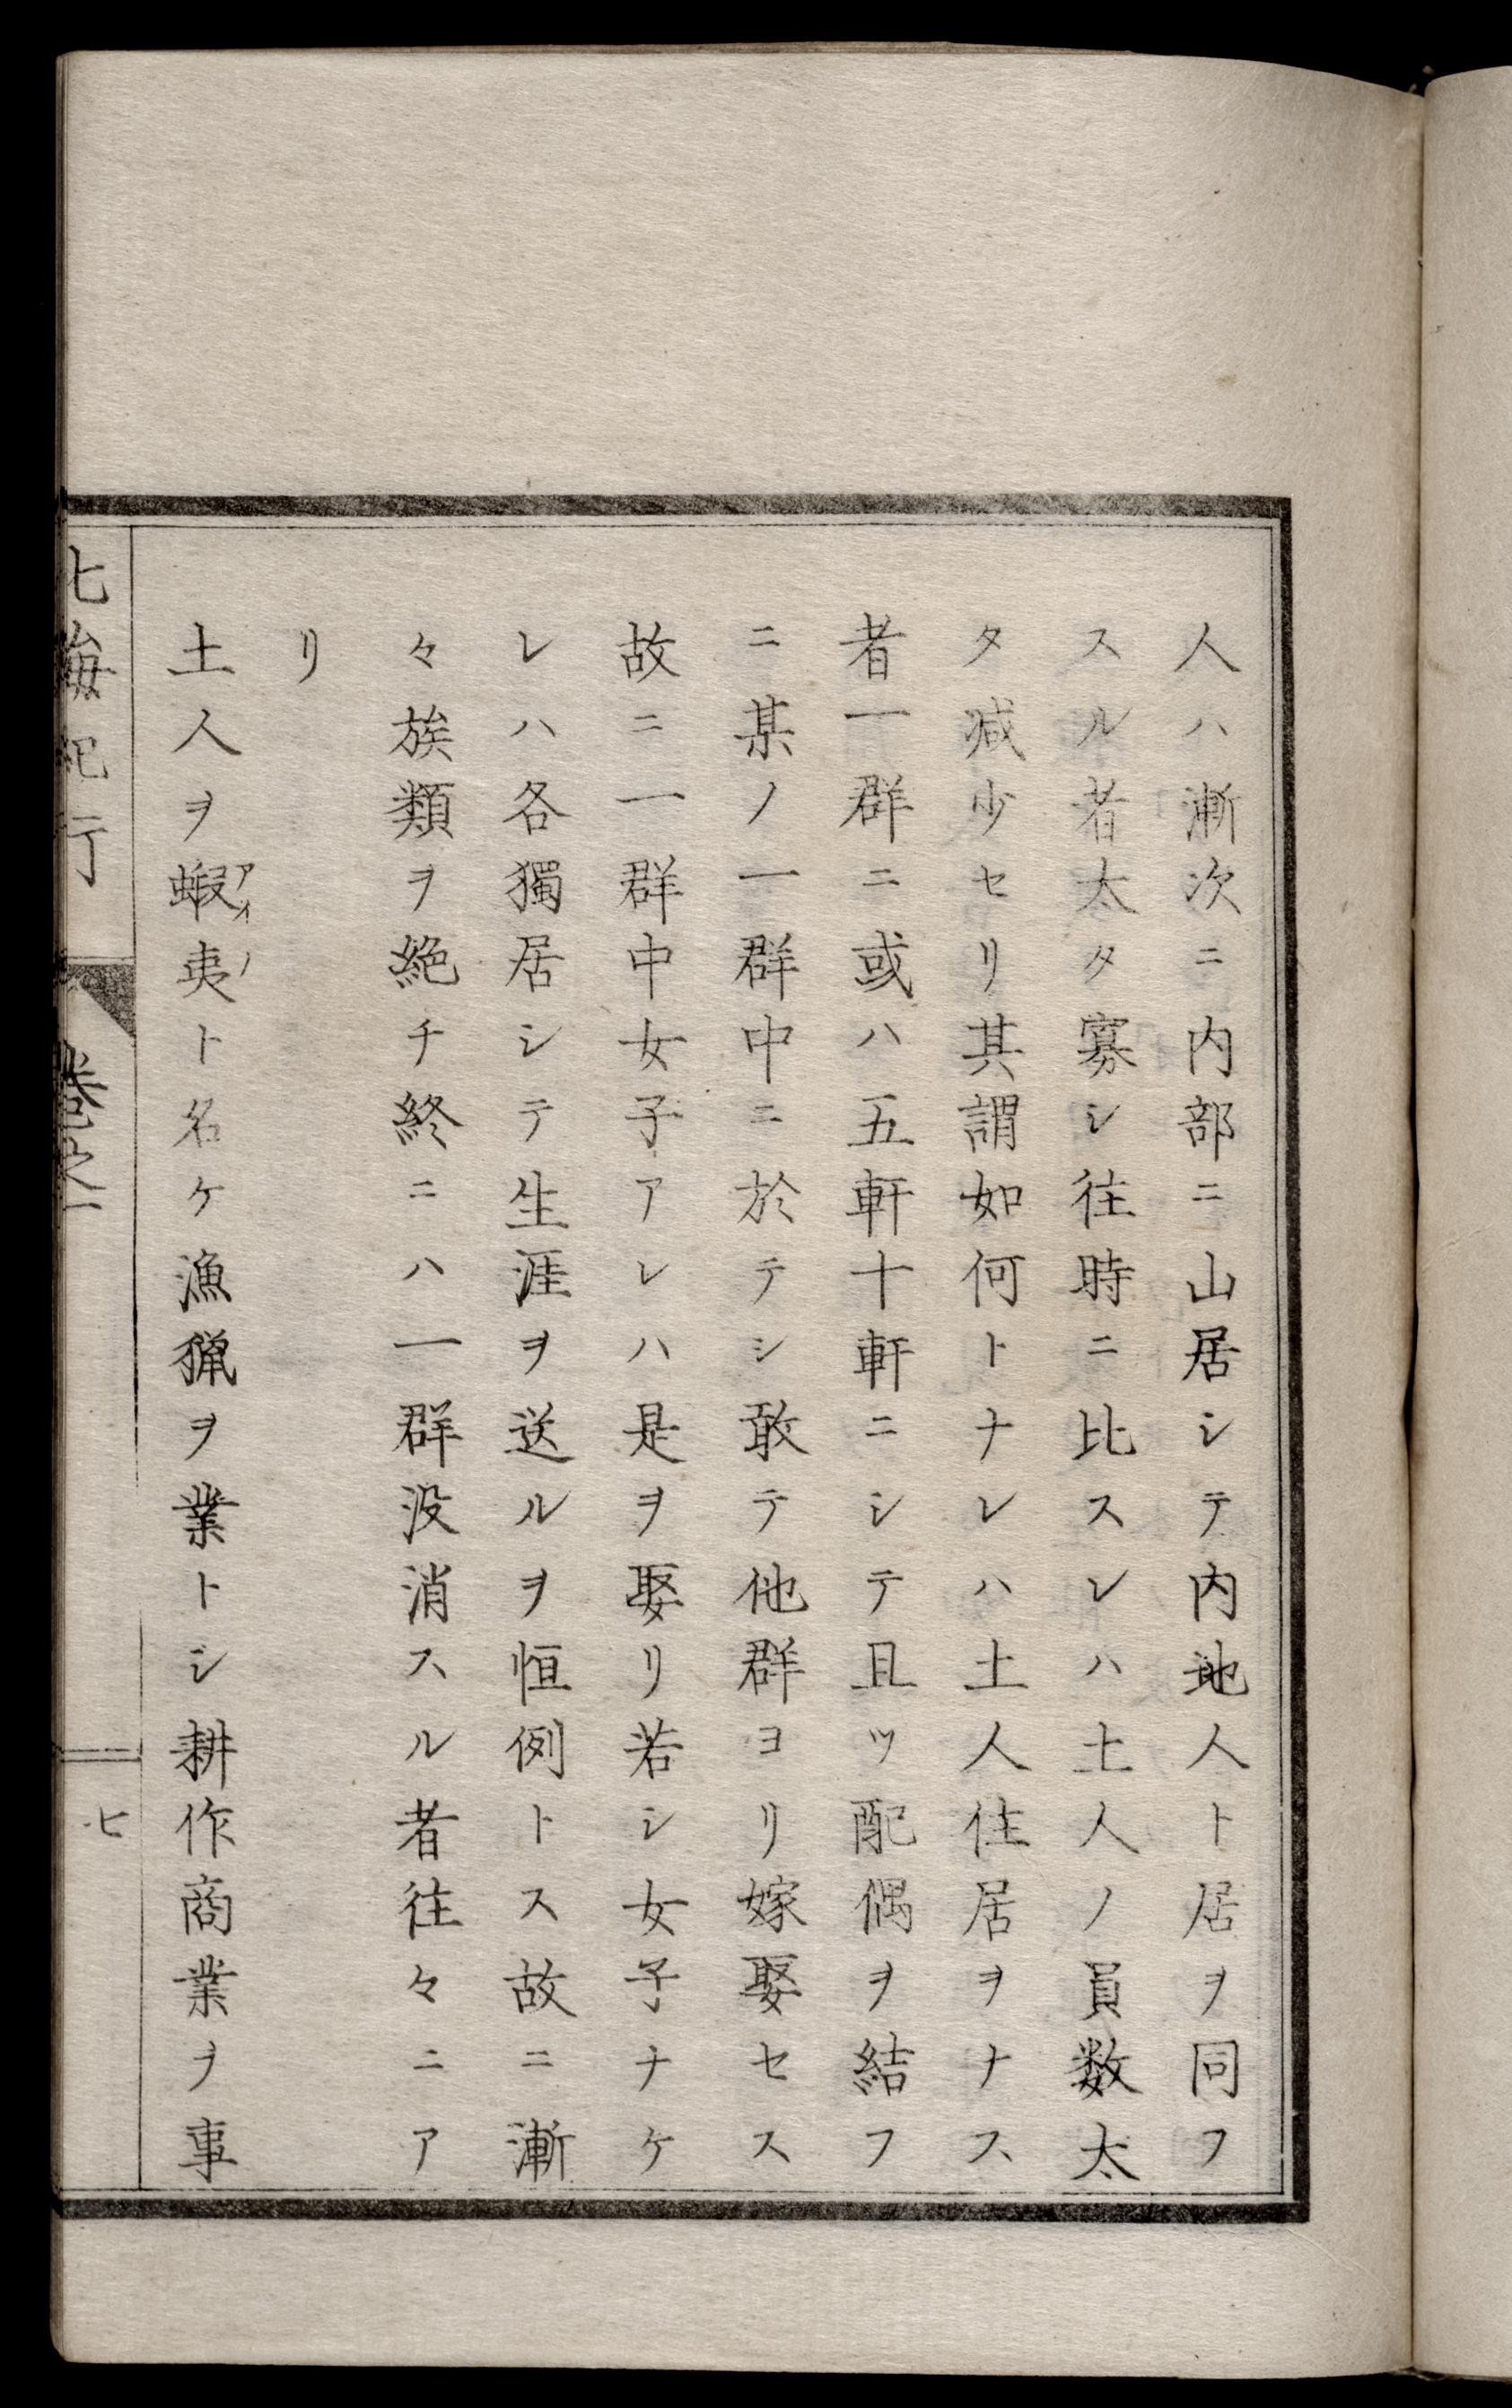 人ハ漸次ニ内部ニ山居シテ内地人ト居ヲ同フ
スル者太タ寡シ往時ニ比スレハ土人ノ員数太
タ減少セリ其謂如何トナレハ土人住居ヲナス
者一群ニ或ハ五軒十軒ニシテ且ツ配偶ヲ結フ
ニ某ノ一群中ニ於テシ敢テ他群ヨリ嫁娶セス
故ニ一群中女子アレハ是ヲ娶リ若シ女子ナケ
レハ各獨居シテ生涯ヲ送ルヲ恒例トス故ニ漸
々族類ヲ絶チ終ニハ一群没消スル者往々ニア
リ
土人ヲ蝦夷アイノト名ケ漁猟ヲ業トシ耕作商業ヲ事
北海紀行
巻之一
七